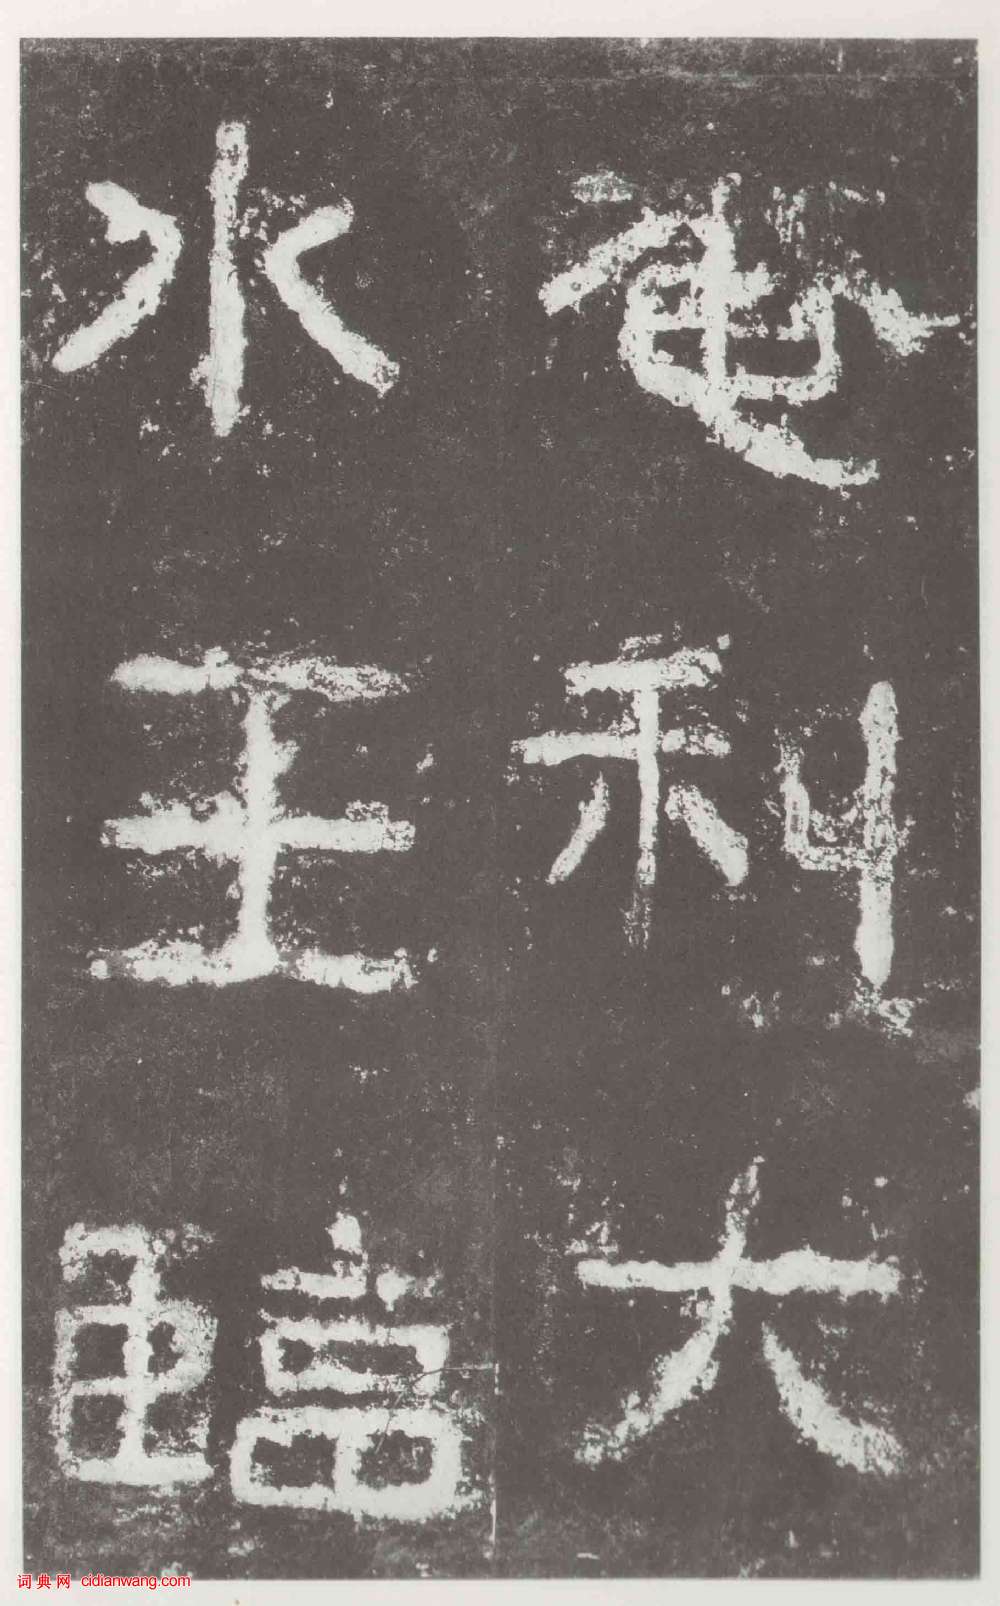 奄利大
水王臨
词典网 cidianwang.com